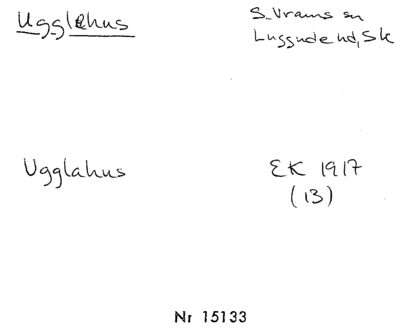 Ugglehus
S. Vrams sn
Luggude hd, Sk
Ugglahus
EK 1917
(13)
Nr 15133